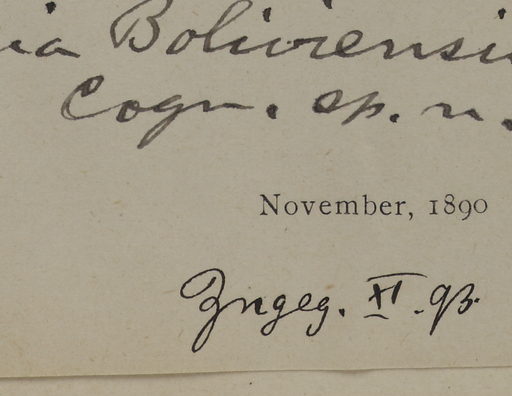 ia Boliviensi
Cogn. sp. n.
November, 1890
Zngeg. XI. 93.